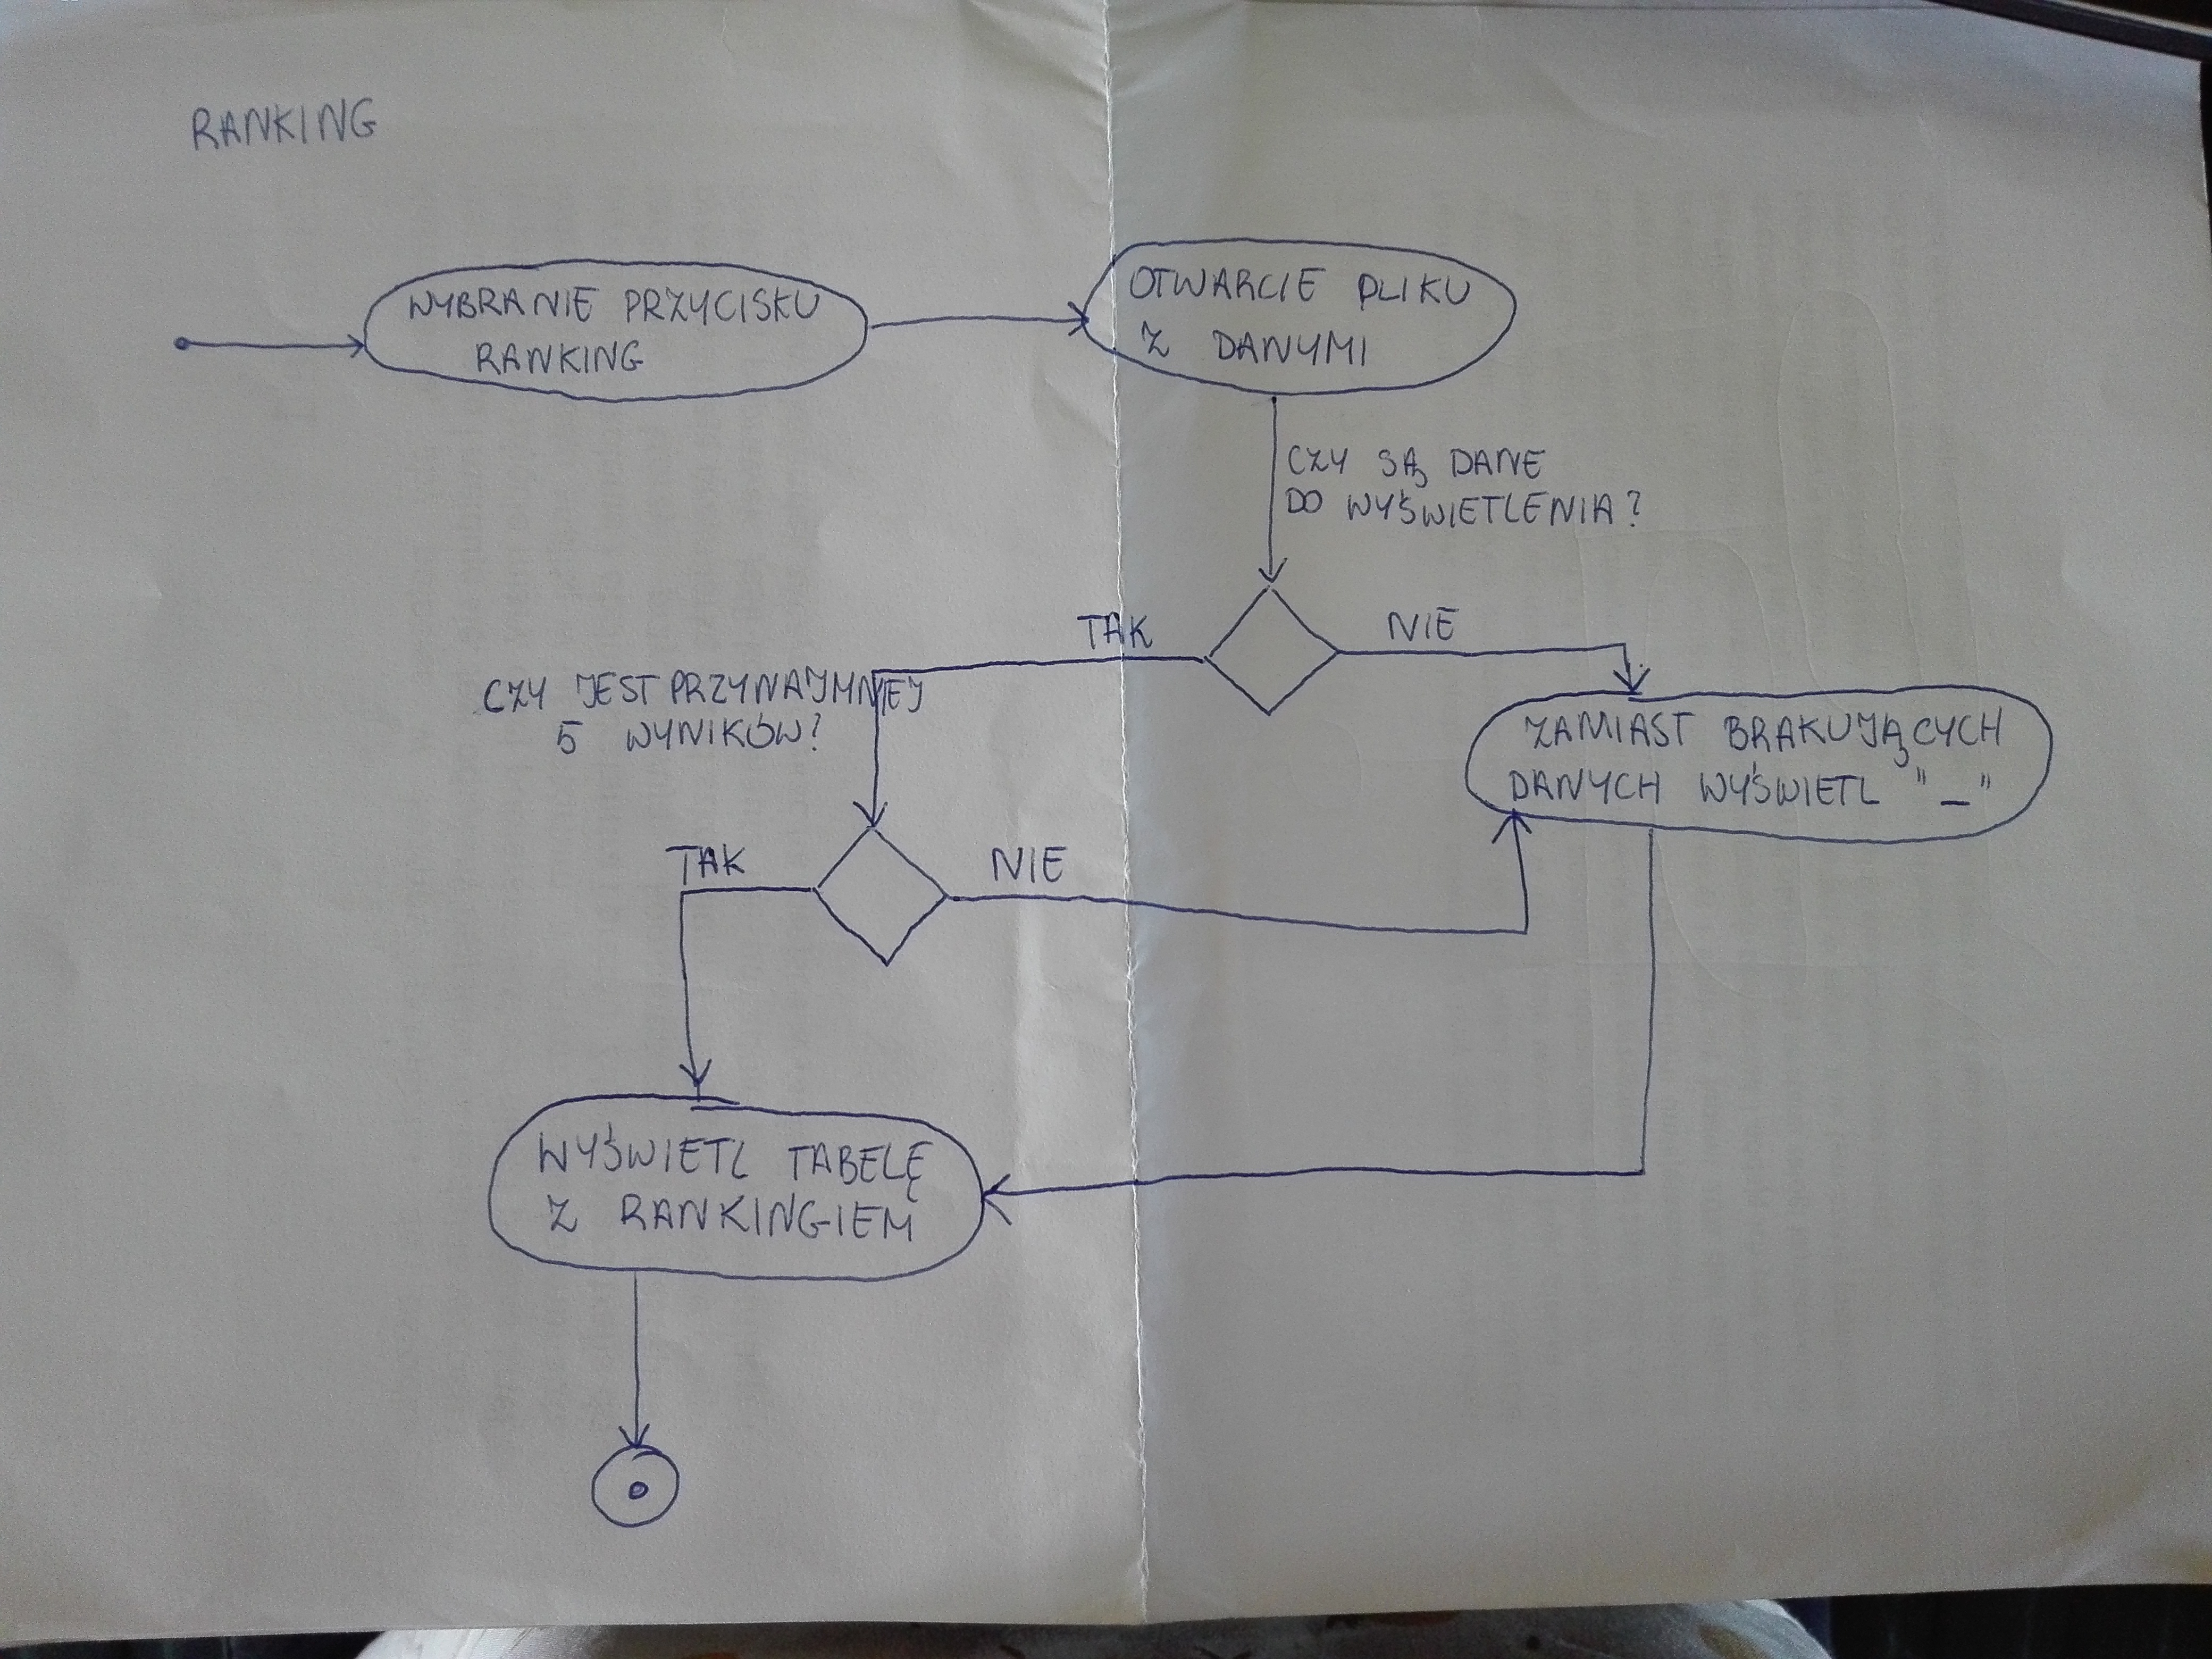 RANKING
WYBRANIE PRZYCISKU
RANKING
OTWARCIE PLIKU
Z DANYMI
CZY SĄ DANE
DO WYŚWIETLENIA?
TAK
NIE
CZY JEST PRZYNAJMNIEJ
5 WYNIKÓW?
ZAMIAST BRAKUJĄCYCH
DANYCH WYŚWIETL "_"
TAK
NIE
WYŚWIETL TABELĘ
Z RANKINGIEM